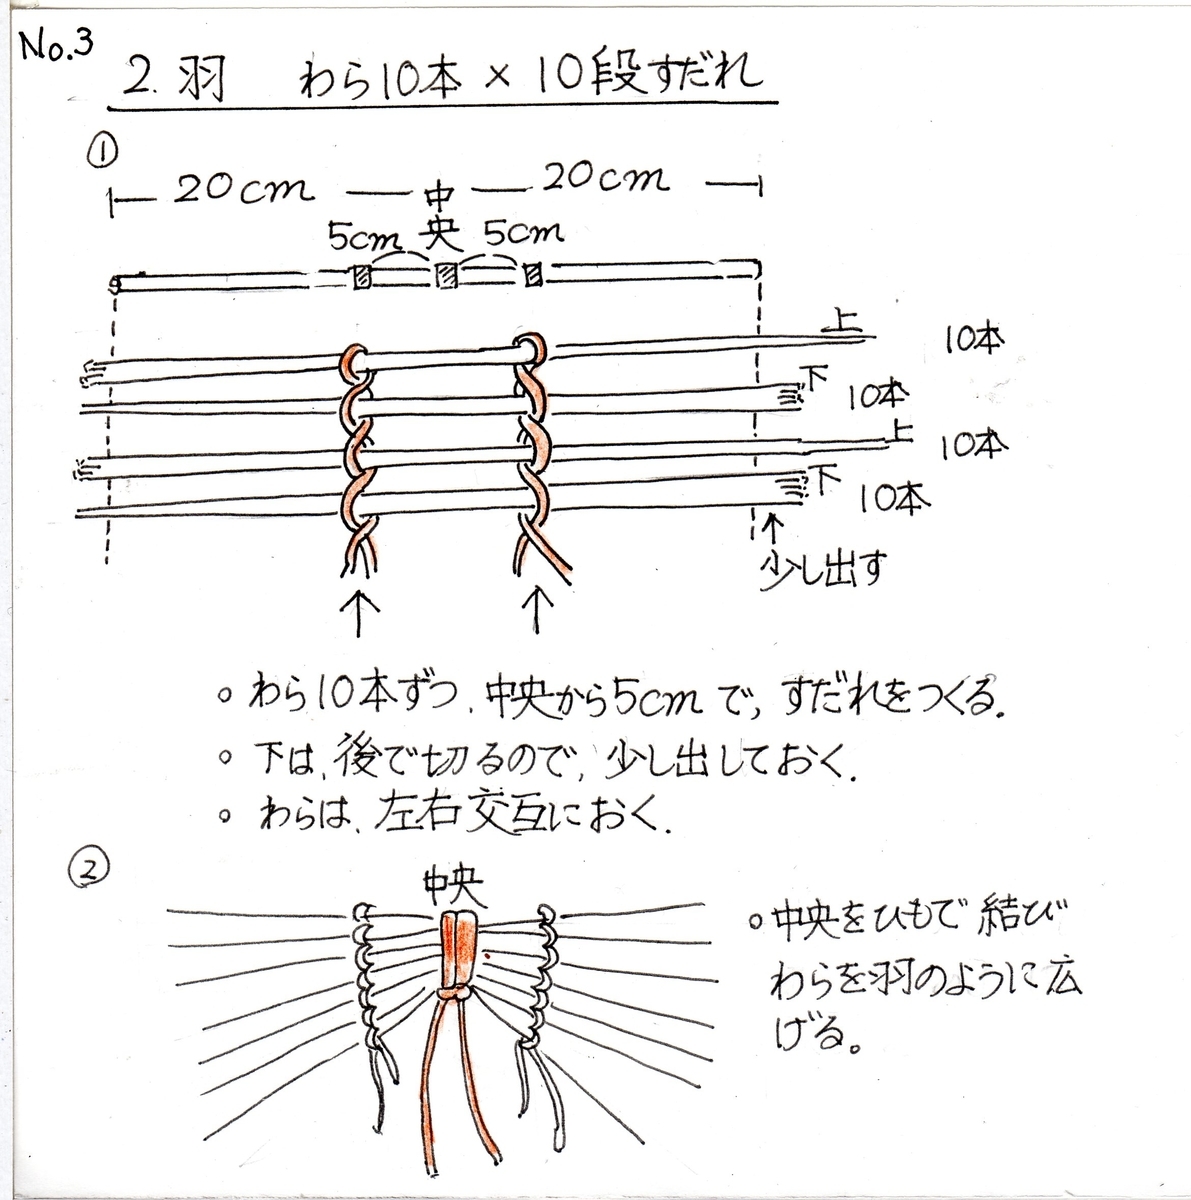 No.3
2. 羽 わら10本 × 10段すだれ
①
20cm 中央 20cm
5cm 5cm
上 10本
下 10本
上 10本
下 10本
少し出す
○ わら10本ずつ、中央から5cmで、すだれをつくる.
○ 下は、後で切るので、少し出しておく.
○ わらは、左右交互におく.
②
中央
○中央をひもで結び
わらを羽のように広
げる。